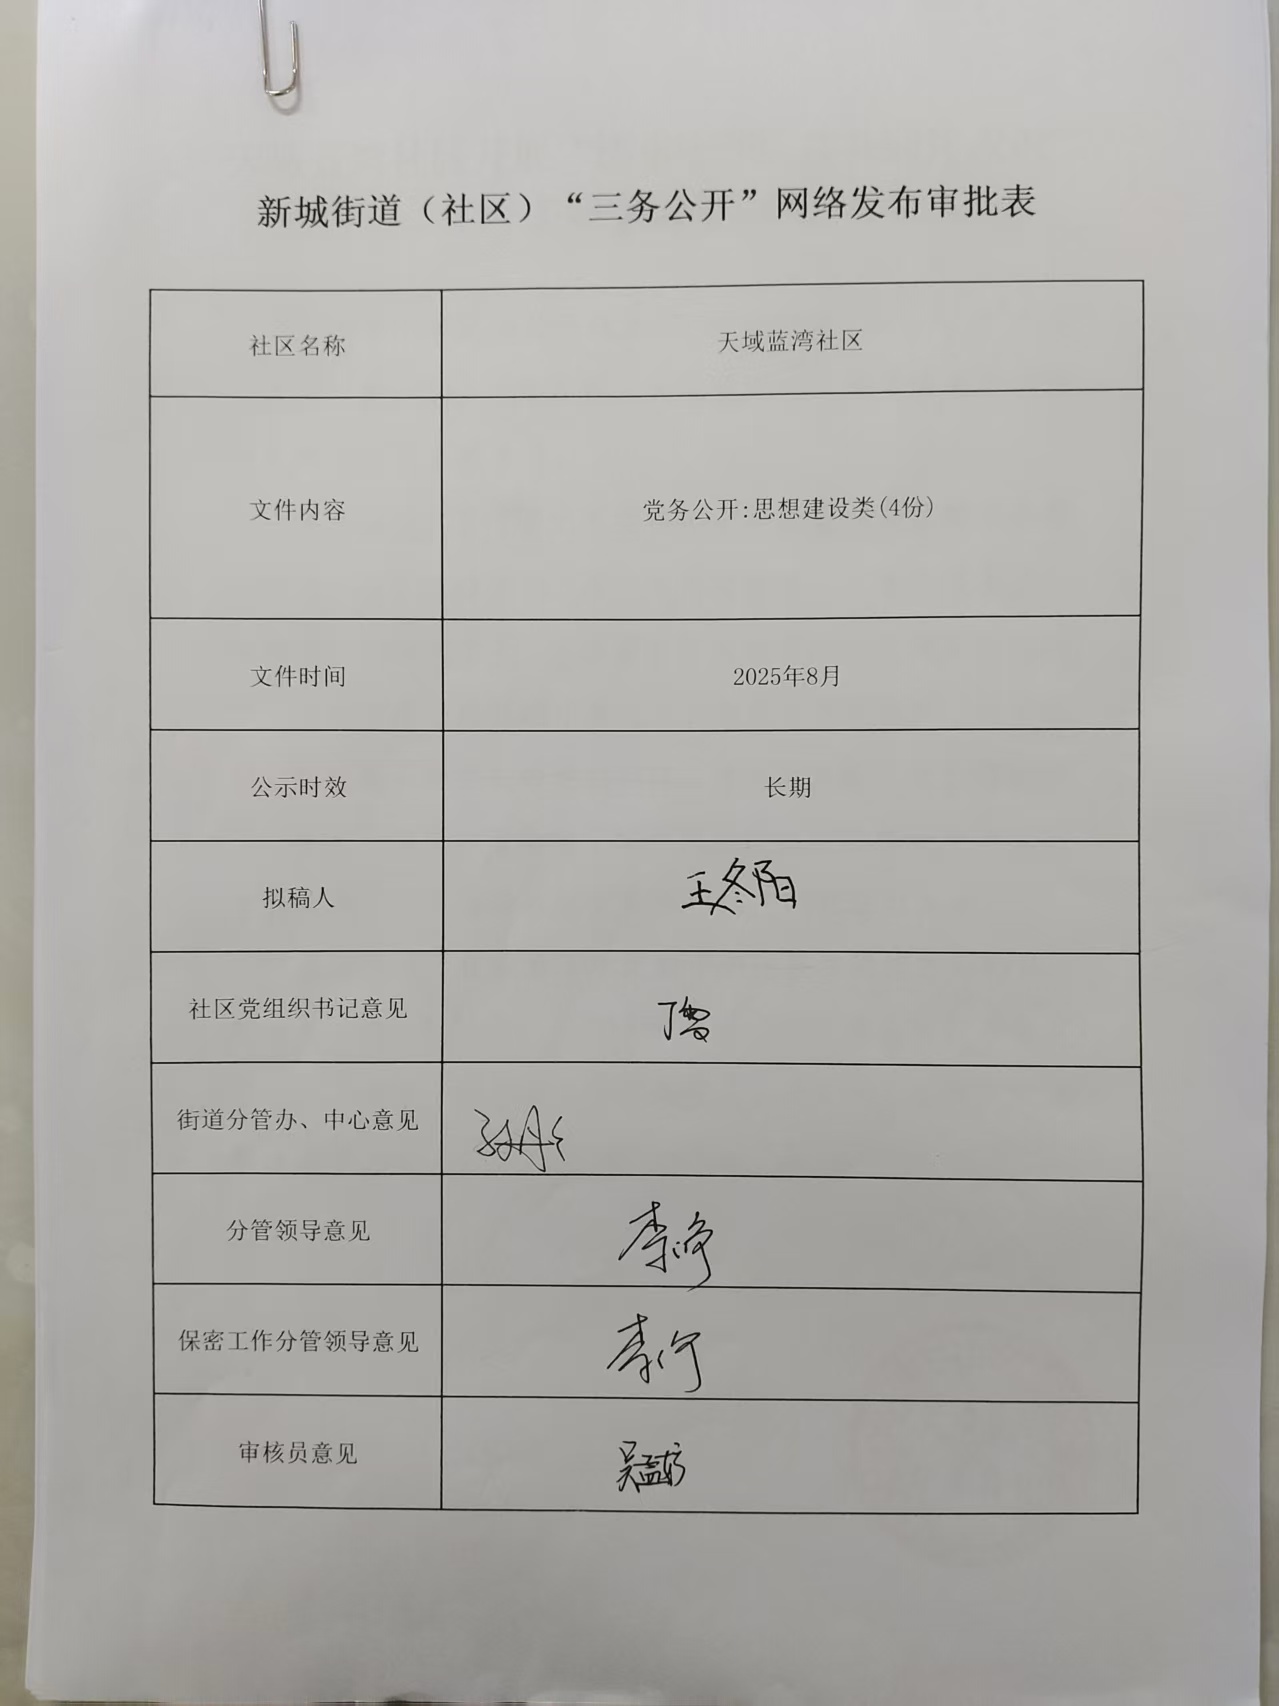 新城街道（社区）“三务公开”网络发布审批表
社区名称 天域蓝湾社区
文件内容 党务公开:思想建设类(4份)
文件时间 2025年8月
公示时效 长期
拟稿人 王冬阳
社区党组织书记意见
街道分管办、中心意见
分管领导意见
保密工作分管领导意见
审核员意见